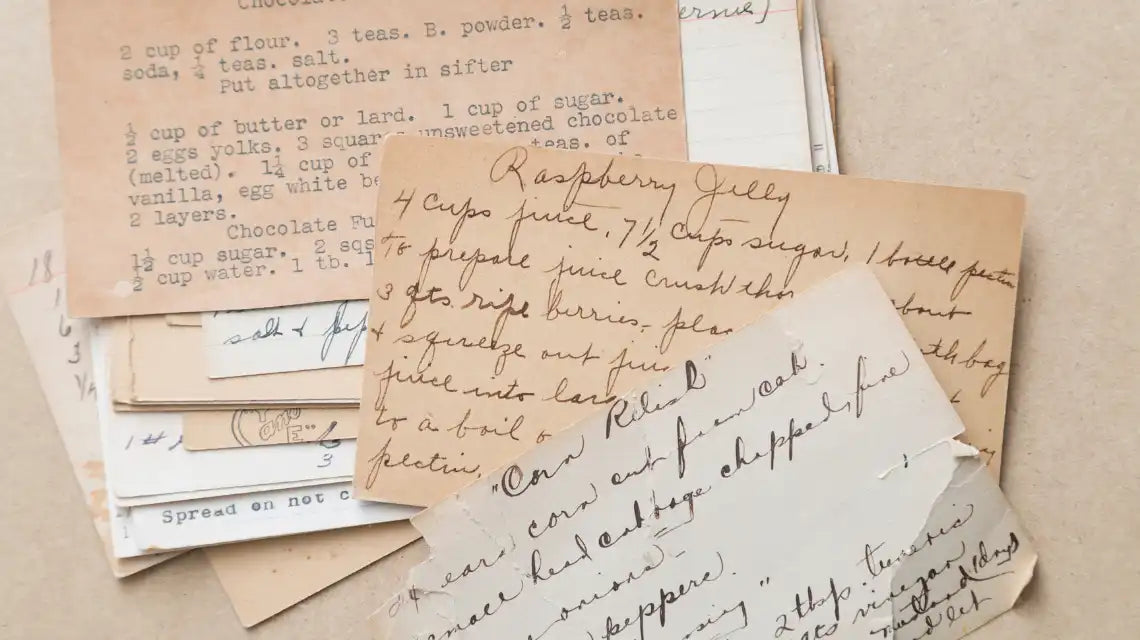 Chocolate
2 cup of flour. 3 teas. B. powder. ½ teas.
soda, ¼ teas. salt.
Put altogether in sifter
½ cup of butter or lard. 1 cup of sugar.
2 eggs yolks. 3 squar unsweetened chocolate
(melted). 1¼ cup of teas. of
vanilla, egg white be
2 layers.
Chocolate Fu
1½ cup sugar. 2 sqs
½ cup water. 1 tb.
salt &
1 #
3
Spread on not c
18
1
6
3
Raspberry Jelly
4 cups juice, 7½ cups sugar, 1 bottle pectin
To prepare juice crush thor about
3 qts. ripe berries, plac
& squeeze out juic th bag
juice into larg
to a boil
pectin,
"Corn Relish"
corn cut from cob.
small head cabbage chopped fine
onions
peppers.
2 tbsp. tumeric
qts vinegar
mustard